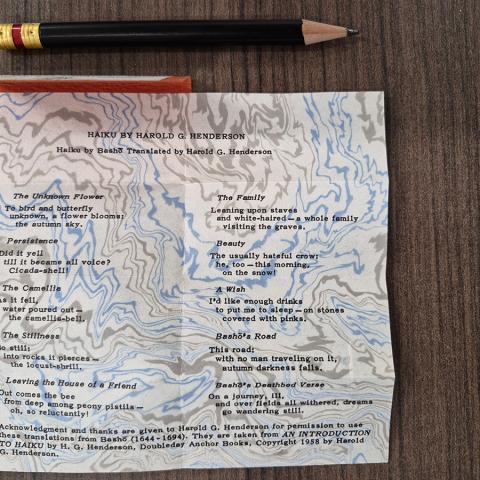 HAIKU BY HAROLD G. HENDERSON
Haiku by Bashō Translated by Harold G. Henderson
The Unknown Flower
To bird and butterfly
unknown, a flower blooms;
the autumn sky.
Persistence
Did it yell
till it became all voice?
Cicada-shell!
The Camellia
As it fell,
water poured out—
the camellia-bell.
The Stillness
So still:
into rocks it pierces—
the locust-shrill.
Leaving the House of a Friend
Out comes the bee
from deep among peony pistils—
oh, so reluctantly!
The Family
Leaning upon staves
and white-haired—a whole family
visiting the graves.
Beauty
The usually hateful crow:
he, too—this morning,
on the snow!
A Wish
I'd like enough drinks
to put me to sleep—on stones
covered with pinks.
Bashō's Road
This road:
with no man traveling on it,
autumn darkness falls.
Bashō's Deathbed Verse
On a journey, ill,
and over fields all withered, dreams
go wandering still.
Acknowledgment and thanks are given to Harold G. Henderson for permission to use
these translations from Bashō (1644-1694). They are taken from AN INTRODUCTION
TO HAIKU by H. G. Henderson, Doubleday Anchor Books, Copyright 1958 by Harold
G. Henderson.